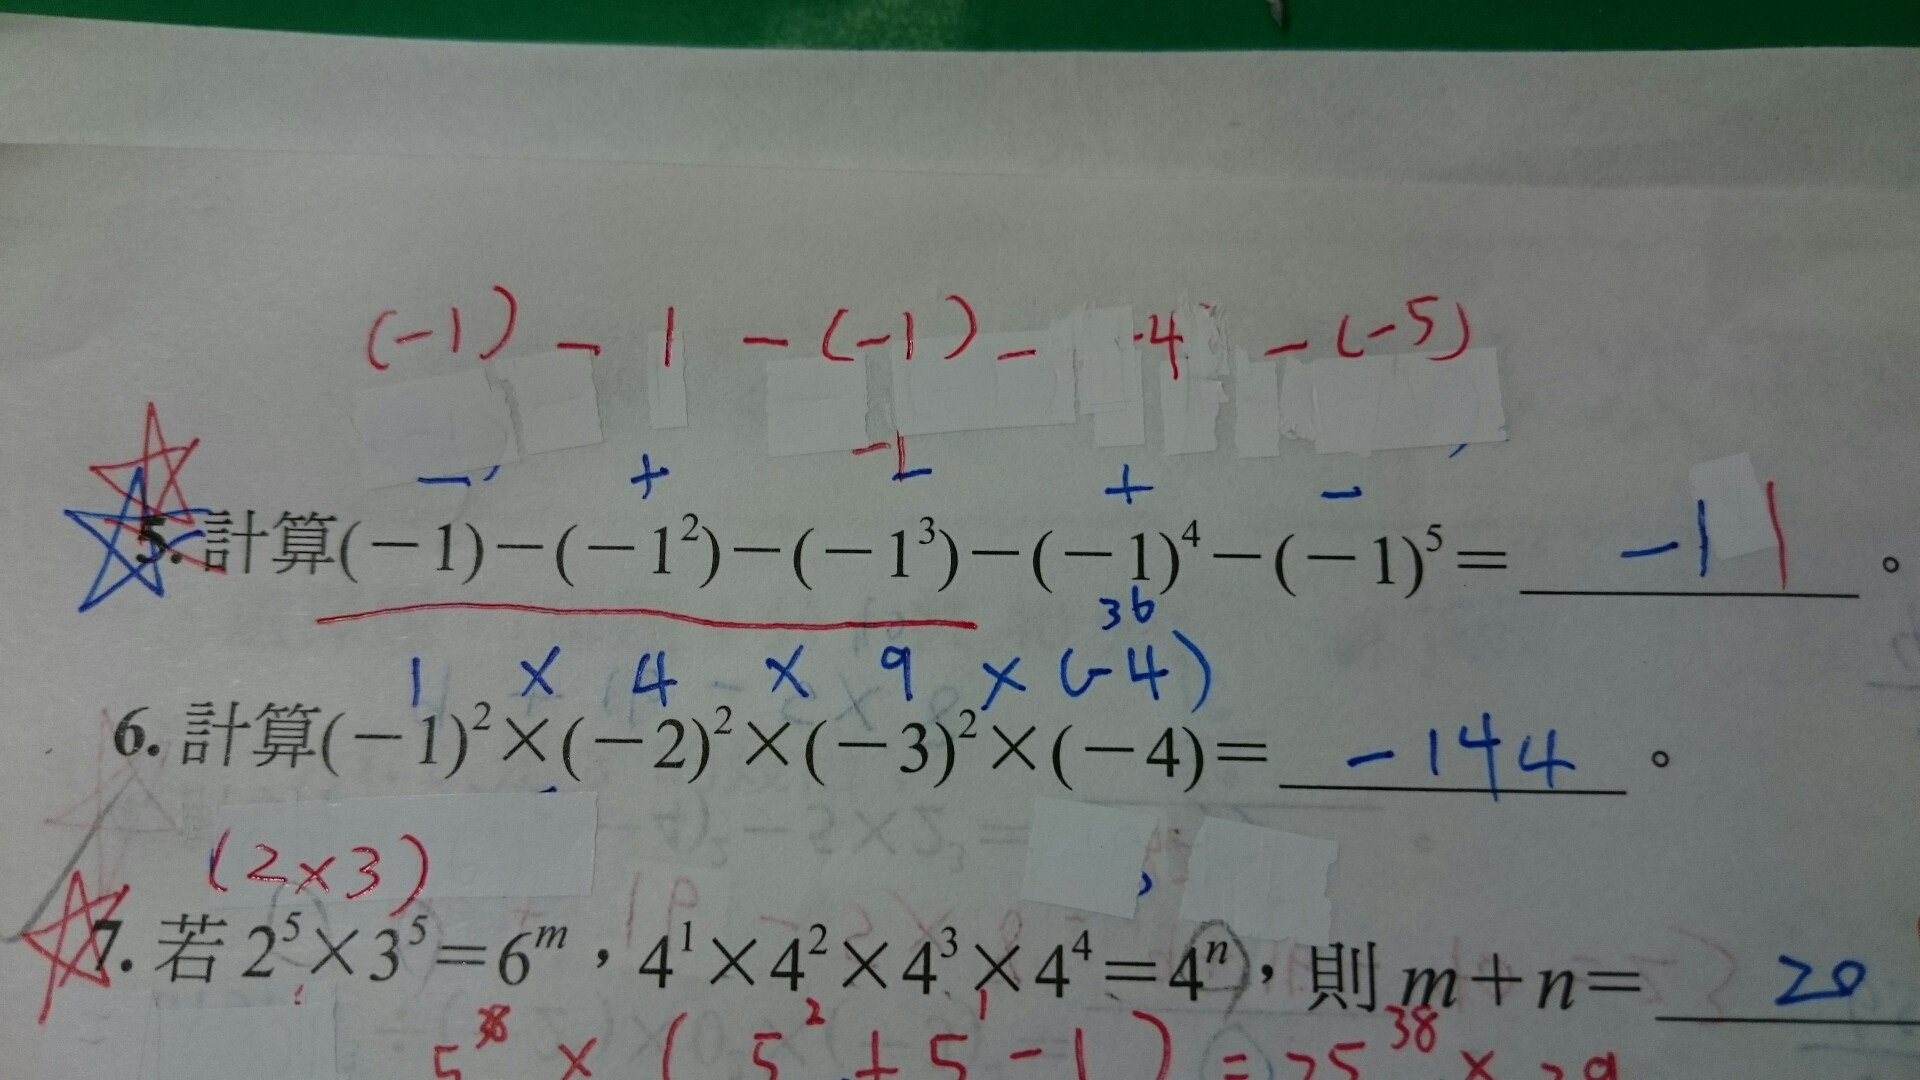 (-1) - 1 - (-1) - 4 - (-5)
-1
- + - + -
5. 計算(-1)-(-1²)-(-1³)-(-1)⁴-(-1)⁵= -1 1 。
36
1 × 4 × 9 × (-4)
6. 計算(-1)²×(-2)²×(-3)²×(-4)= -144 。
(2×3)
7. 若 2⁵×3⁵=6ᵐ,4¹×4²×4³×4⁴=4ⁿ,則 m+n= 20
5³⁸ × (5² + 5¹ - 1) =